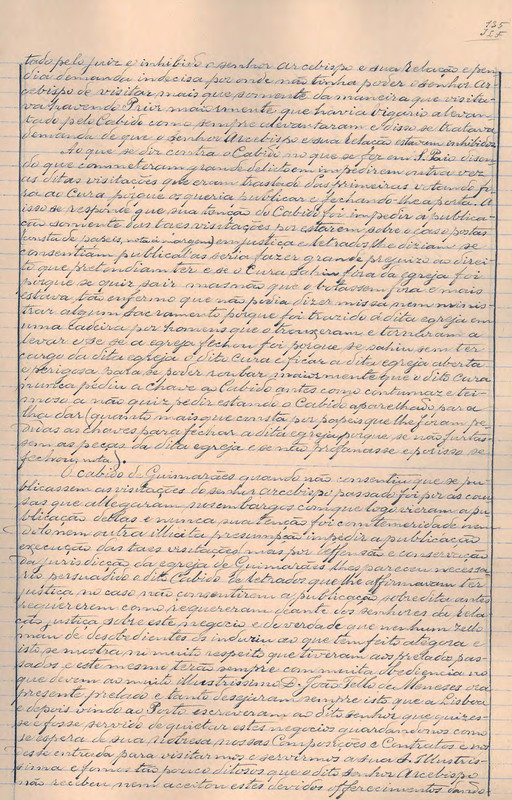 125
tado pelo juiz e inhibido o senhor arcebispo e sua Relação e pen
dia demanda indecisa por onde não tinha poder o senhor Ar
cebispo de visitar mais que somente da maneira que visita
va havendo Prior maiormente que havia vigario alevan
tado pelo Cabido como sempre alevantaram e disso se tratava
demanda de que o senhor Arcebispo e sua Relação estavam inhibidos
Ao que se diz contra o Cabido no que se fez em S. Paio dizen
do que commeteram grandes delictos em impedirem outra vez
as ditas visitações que eram traslado das primeiras e tendo fó
ra ao Cura porque os queria publicar e fechando-lhe a porta. A
isso se responde que sua tenção do Cabido foi impedir a publica
ção somente das taes visitações por estarem sobre o caso postas
(consta de papeis, nota á margem) em justiça e letrados lhe diziam se
consentiam publical-as seria fazer grande prejuizo ao direi
to que pretendiam ter e se o Cura sahiu fóra da egreja foi
porque se quiz sair mas não que o botassem fóra e mais
estava tão enfermo que não podia dizer missa nem minis
trar algum sacramento porque foi trazido á dita egreja em
uma cadeira por homens que o trouxeram e tornaram a
levar e se se a egreja fechou foi porque se sahiu sem ter
cargo da dita egreja o dito cura e ficar a dita egreja aberta
e perigosa para se poder roubar maiormente que o dito cura
nunca pediu a chave ao Cabido antes como contumaz e tei
moso a não quiz pedir estando o Cabido apparelhado para
lha dar (quanto mais que consta por papeis que lhe foram pe
didas as chaves para fechar a dita egreja porque se não furtas
sem as peças da dita egreja e se não profanasse e por isso se
fechou, nota).
O cabido de Guimarães quando não consentiu que se pu
blicassem as visitações do senhor arcebispo passado foi por as cau
sas que allegaram nos embargos com que logo vieram a pu
blicação dellas e nunca sua tenção foi com temeridade nem
dolo nem outra illicita presumpção impedir a publicação
execução das taes visitações mas por deffensão e conservação
da jurisdicção da egreja de Guimarães lhes pareceu necessa
rio persuadido o dito Cabido de letrados que lhe affirmavam ter
justiça no caso não consentirem a publicação sobredita antes
requererem como requereram deante dos senhores da Rela
ção justiça sobre este negocio e de verdade que nenhum zello
mau de desobedientes os induziu ao que tem feito até gora e
isto se mostra no muito respeito que tiveram aos prelados pas
sados e este mesmo terão sempre com muita obediencia no
que devem ao muito Illustrissimo D. João Tello de Menezes ora
presente prelado e tanto desejaram sempre isto que a Lisboa
e depois vindo ao Porto escreveram ao dito senhor que quizes
se e fosse servido de quietar estes negocios guardando-nos como
se espera de sua nobreza nossas Composições e Contratos e nos
esse entrada para visitarmos e servirmos a sua S. Illustris
sima e fomos tão pouco ditosos que o dito senhor Arcebispo
não recebeu nem aceitou estes devidos offerecimentos dando-